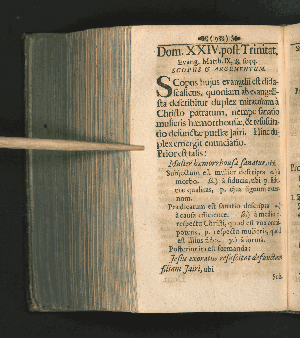 Dom. XXIV. post Trinitat,
Evang. Matth. IX, 8. seqq.
SCOPUS & ARGUMENTUM.
SCopus hujus evangelii est dida-
scalicus, quoniam ab evangeli-
sta describitur duplex miraculum à
Christo patratum, nempe sanatio
mulieris hæmorrhousæ, & resuscita-
tio defunctæ puellæ Jairi. Hinc du-
plex emergit enunciatio.
Prior est talis:
Mulier hæmorrhousa sanatur.
Subjectum est mulier descripta
morbo. à fiducia,
qualitas,
nom.
Prædicatum est sanatio descripta
à causa efficiente. à medio:
respectu Christi, quod est
respectu mulieris, quod
est à forma.
Posterior est formanda:
Jesus exoratus resuscitat defunctam
filiam Jairi, ubi
Sub.